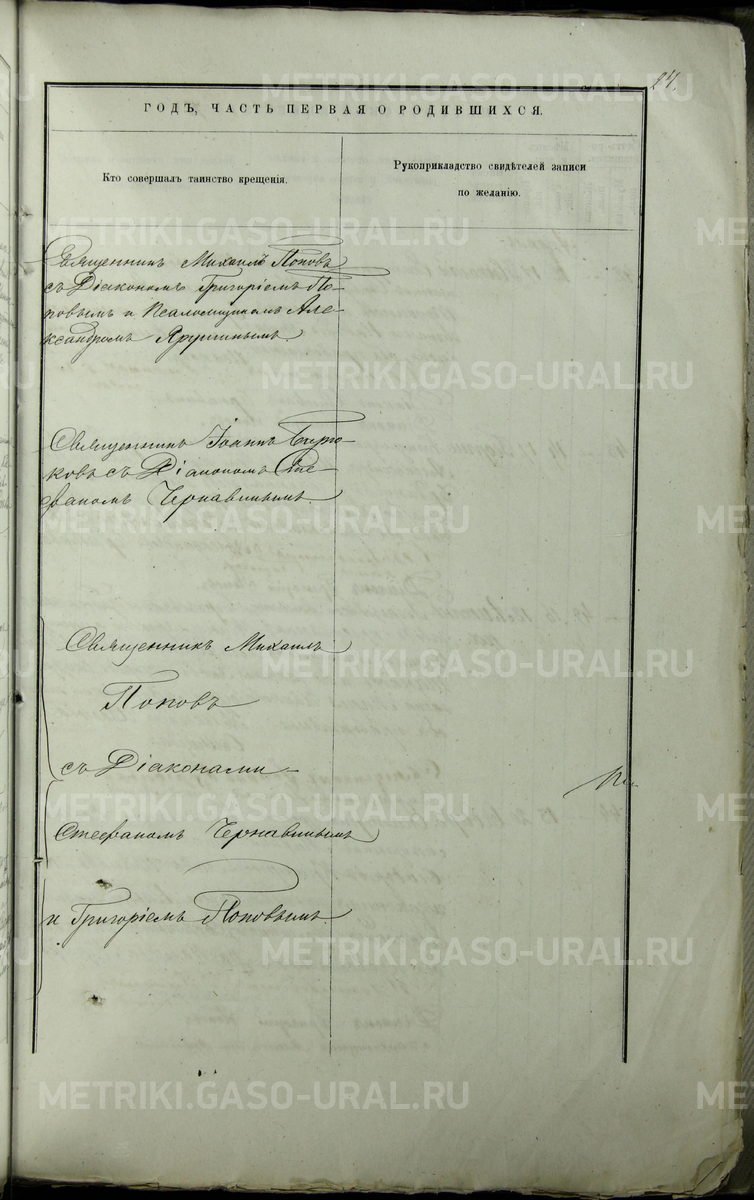 24.
ГОДЪ, ЧАСТЬ ПЕРВАЯ О РОДИВШИХСЯ.
Кто совершалъ таинство крещенія.
Рукоприкладство свидѣтелей записи
по желанію.
Священникъ Михаилъ Поповъ
съ Діакономъ Григоріемъ По-
повымъ и Псаломщикомъ Але-
ксандромъ
Священникъ Іоаннъ Бирю-
ковъ съ Діакономъ Сте-
фаномъ Чернавинымъ.
Священникъ Михаилъ
Поповъ
съ Діаконами
Стефаномъ Чернавинымъ
и Григоріемъ Поповымъ.
METRIKI.GASO-URAL.RU